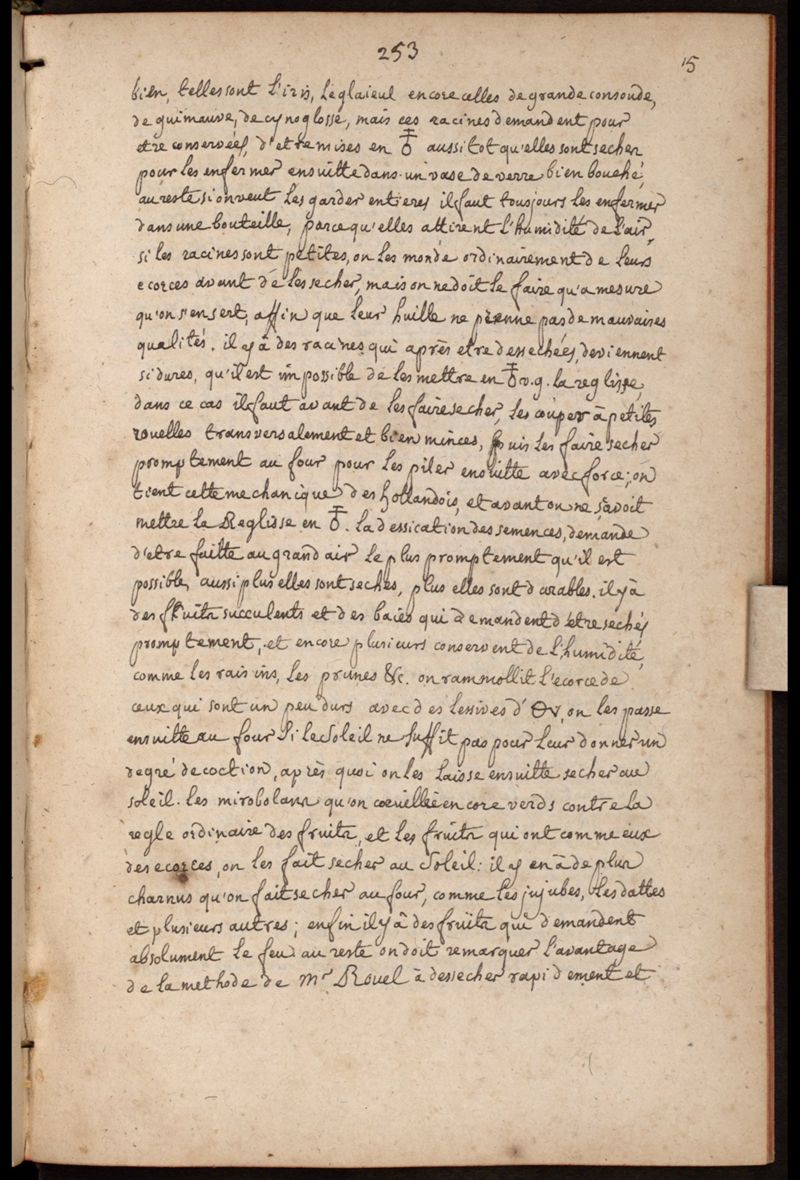 253
15
bien, telles sont l'iris, le glaieul encore celles de grande consoude,
de guimauve, de cynoglosse, mais ces racines demandent pour
etre conservées, d'etre mises en ♁ aussitot qu'elles sont secher
pour les enfermer ensuitte dans un vase de verre bien bouché,
au reste si on veut les garder entieres il faut tousjours les enfermer
dans une bouteille, parce qu'elles attirent l'humidité de l'air,
si les racines sont petites, on les monde ordinairement de leurs
ecorces avant de les secher, mais on ne doit le faire qu'a mesure
qu'on s'en sert, affin que leur huille ne prenne pas de mauvaises
qualités. il y a des racines qui après etre dessechées, deviennent
si dures, qu'il est impossible de les mettre en ♁ v.g. la reglisse,
dans ce cas il faut avant de les faire secher, les couper à petites
rouelles transversalement et bien minces, puis les faire secher
promptement au four pour les piler ensuitte avec force; on
tient cette mechanique des hollandois, et avant on ne savoit
mettre la Reglisse en ♁. la dessication des semences, demande
d'etre faitte au grand air le plus promptement qu'il est
possible, aussi plus elles sont seches, plus elles sont durables. il y à
des fruits succulents et des baies qui demandent d'etre sechés
promptement, et encore plusieurs conservent de l'humidité,
comme les raisins, les prunes &c. on rammollit l'ecorce de
ceux qui sont un peu durs avec des lessives d' on les passe
ensuitte au four si le soleil ne suffit pas pour leur donner un
degré de coction, après quoi on les laisse ensuitte secher au
soleil. les mirobolans qu'on coeuillie encore verds contre la
regle ordinaire des fruits, et les fruits qui ont comme eux
des ecorces, on les fait secher au soleil: il y en à de plus
charnus qu'on fait secher au four, comme les jujubes, les dattes
et plusieurs autres; enfin il y à des fruits qui demandent
absolument le feu au reste on doit remarquer l'avantage
de la methode de Mr Rouel à dessecher rapidement et